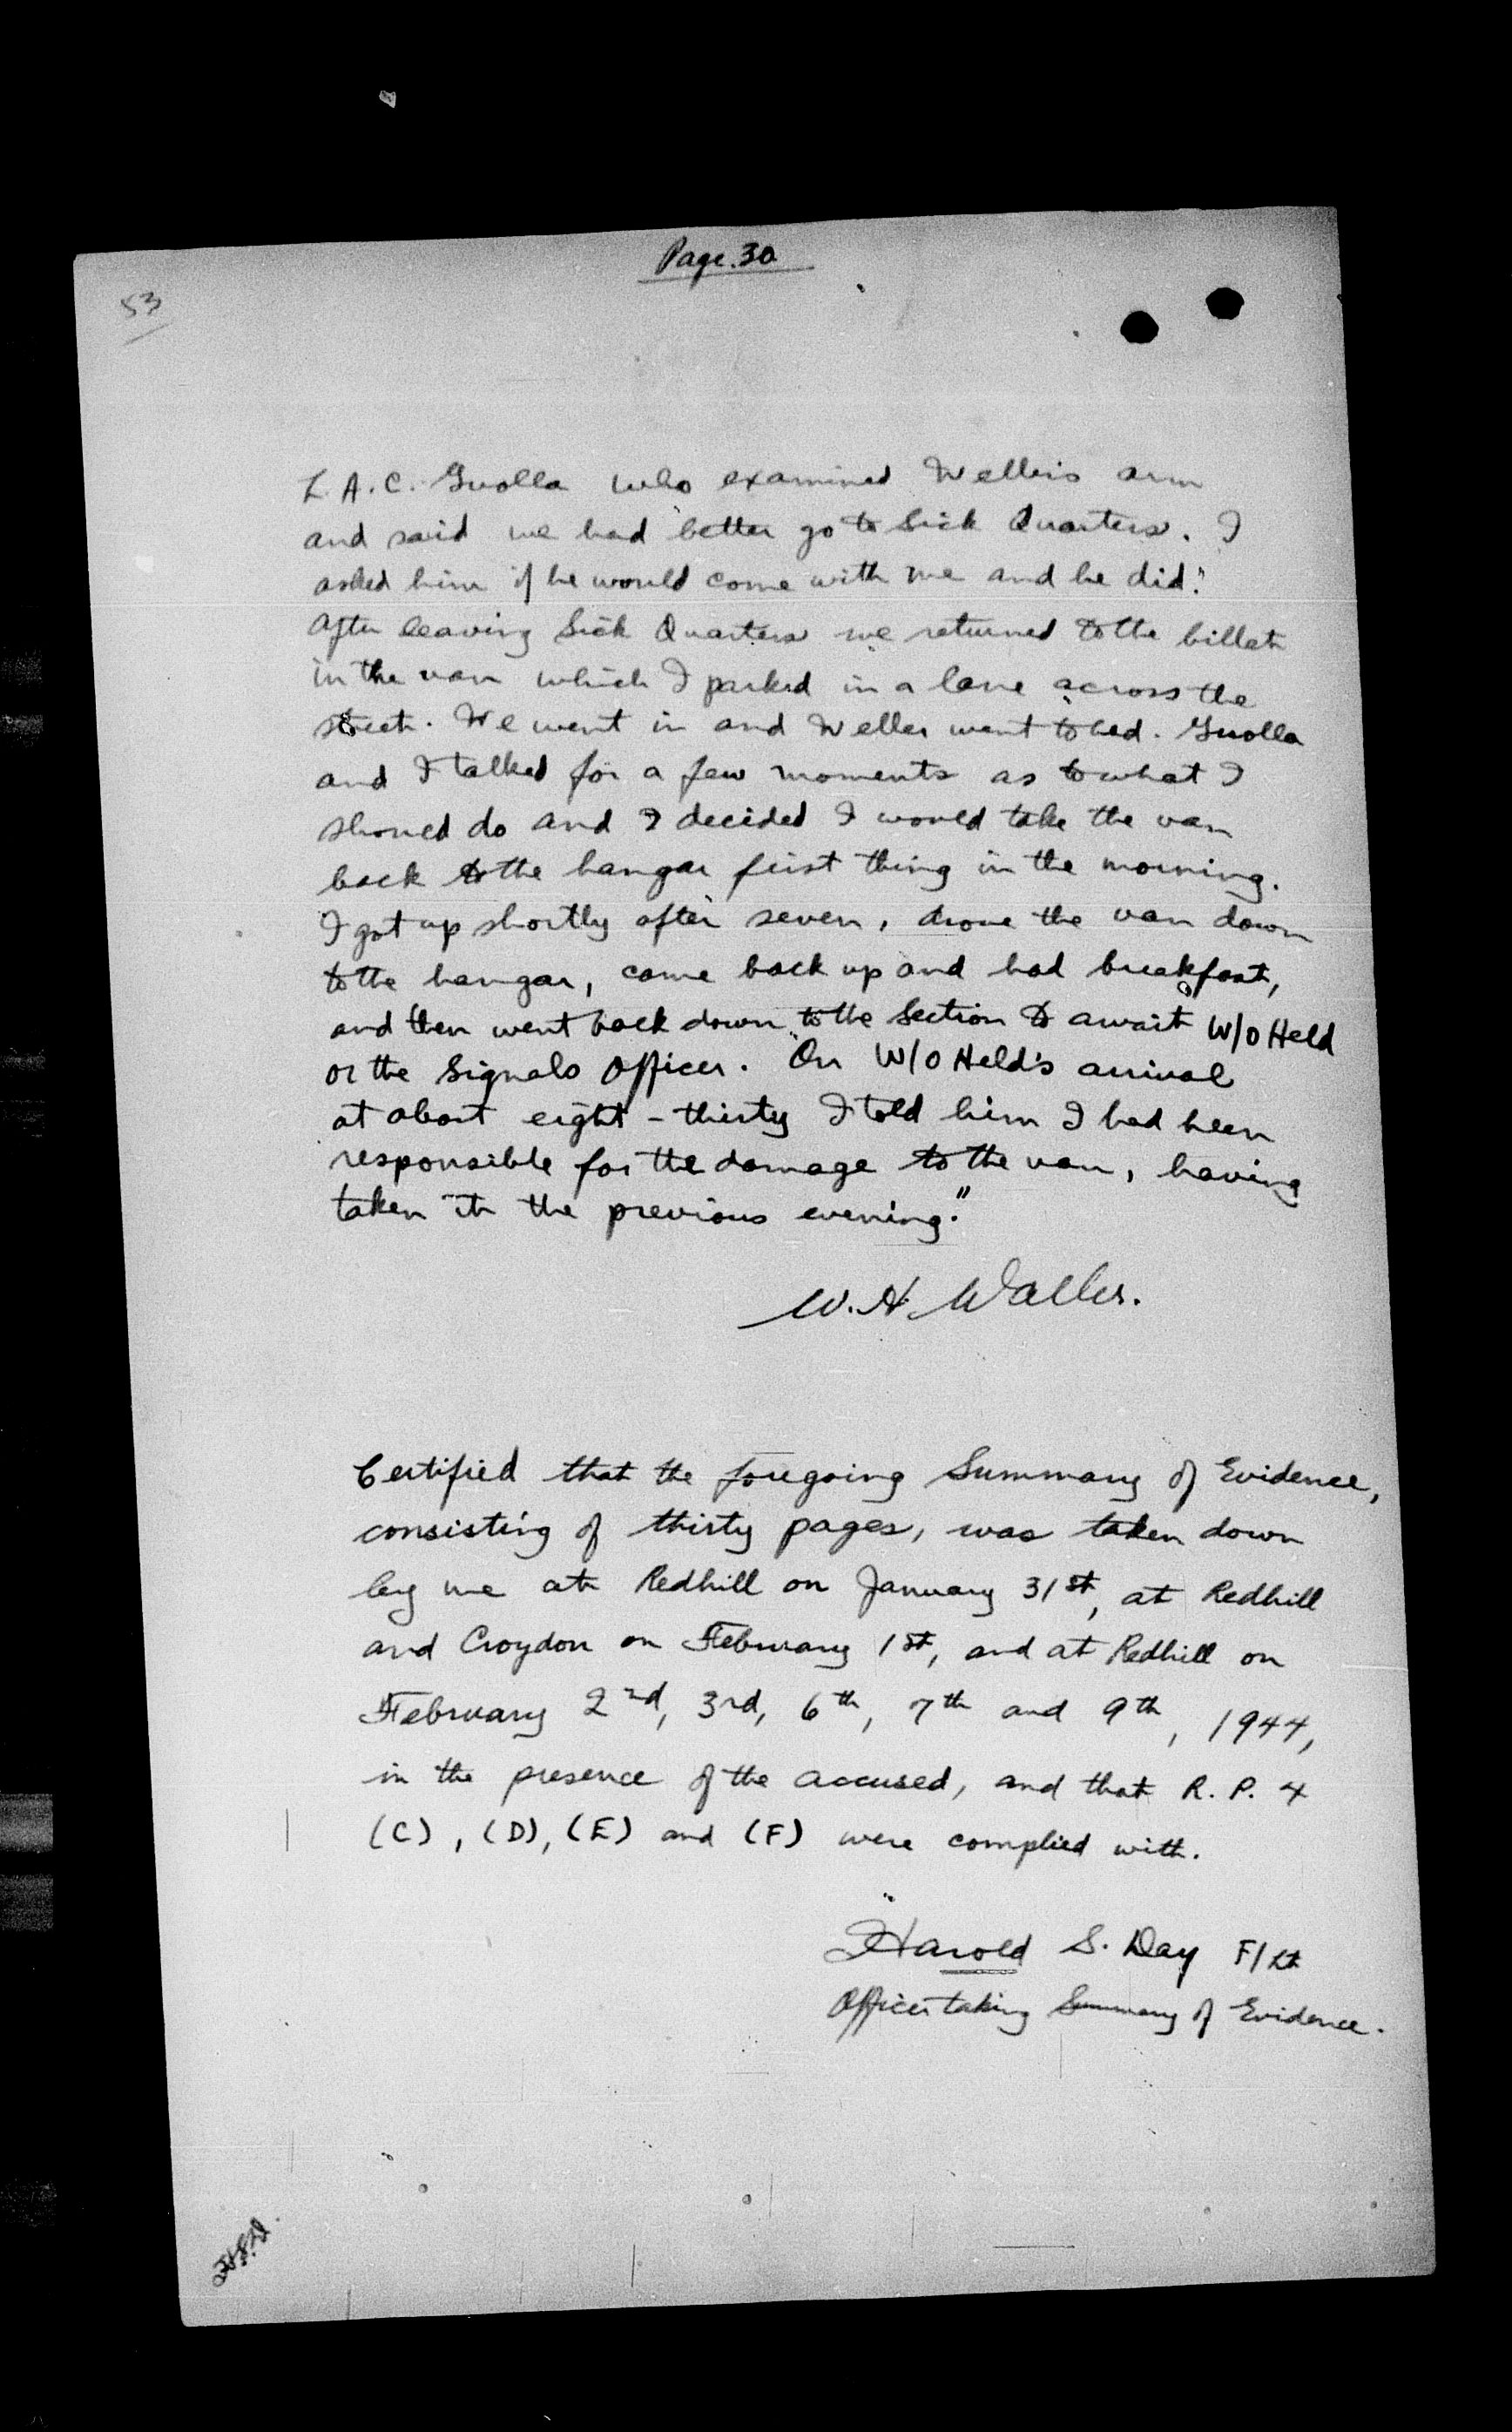 Page.30
53
L.A.C. Guolla who examined Weller's arm
and said we had better go to Sick Quarters. I
asked him if he would come with me and he did."
After leaving Sick Quarters we returned to the billet
in the van which I parked in a lane across the
street. We went in and Weller went to bed. Guolla
and I talked for a few moments as to what I
should do and I decided I would take the van
back to the hangar first thing in the morning.
I got up shortly after seven, drove the van down
to the hangar, came back up and had breakfast,
and then went back down to the Section to await W/O Held
or the Signals Officer. On W/O Held's arrival
at about eight-thirty I told him I had been
responsible for the damage to the van, having
taken it the previous evening."
W. H. Waller.
Certified that the foregoing Summary of Evidence,
consisting of thirty pages, was taken down
by me at Redhill on January 31st, at Redhill
and Croydon on February 1st, and at Redhill on
February 2nd, 3rd, 6th, 7th and 9th, 1944,
in the presence of the accused, and that R. P. 4
(C), (D), (E) and (F) were complied with.
Harold S. Day F/Lt
Officer taking Summary of Evidence.
H.S.D.